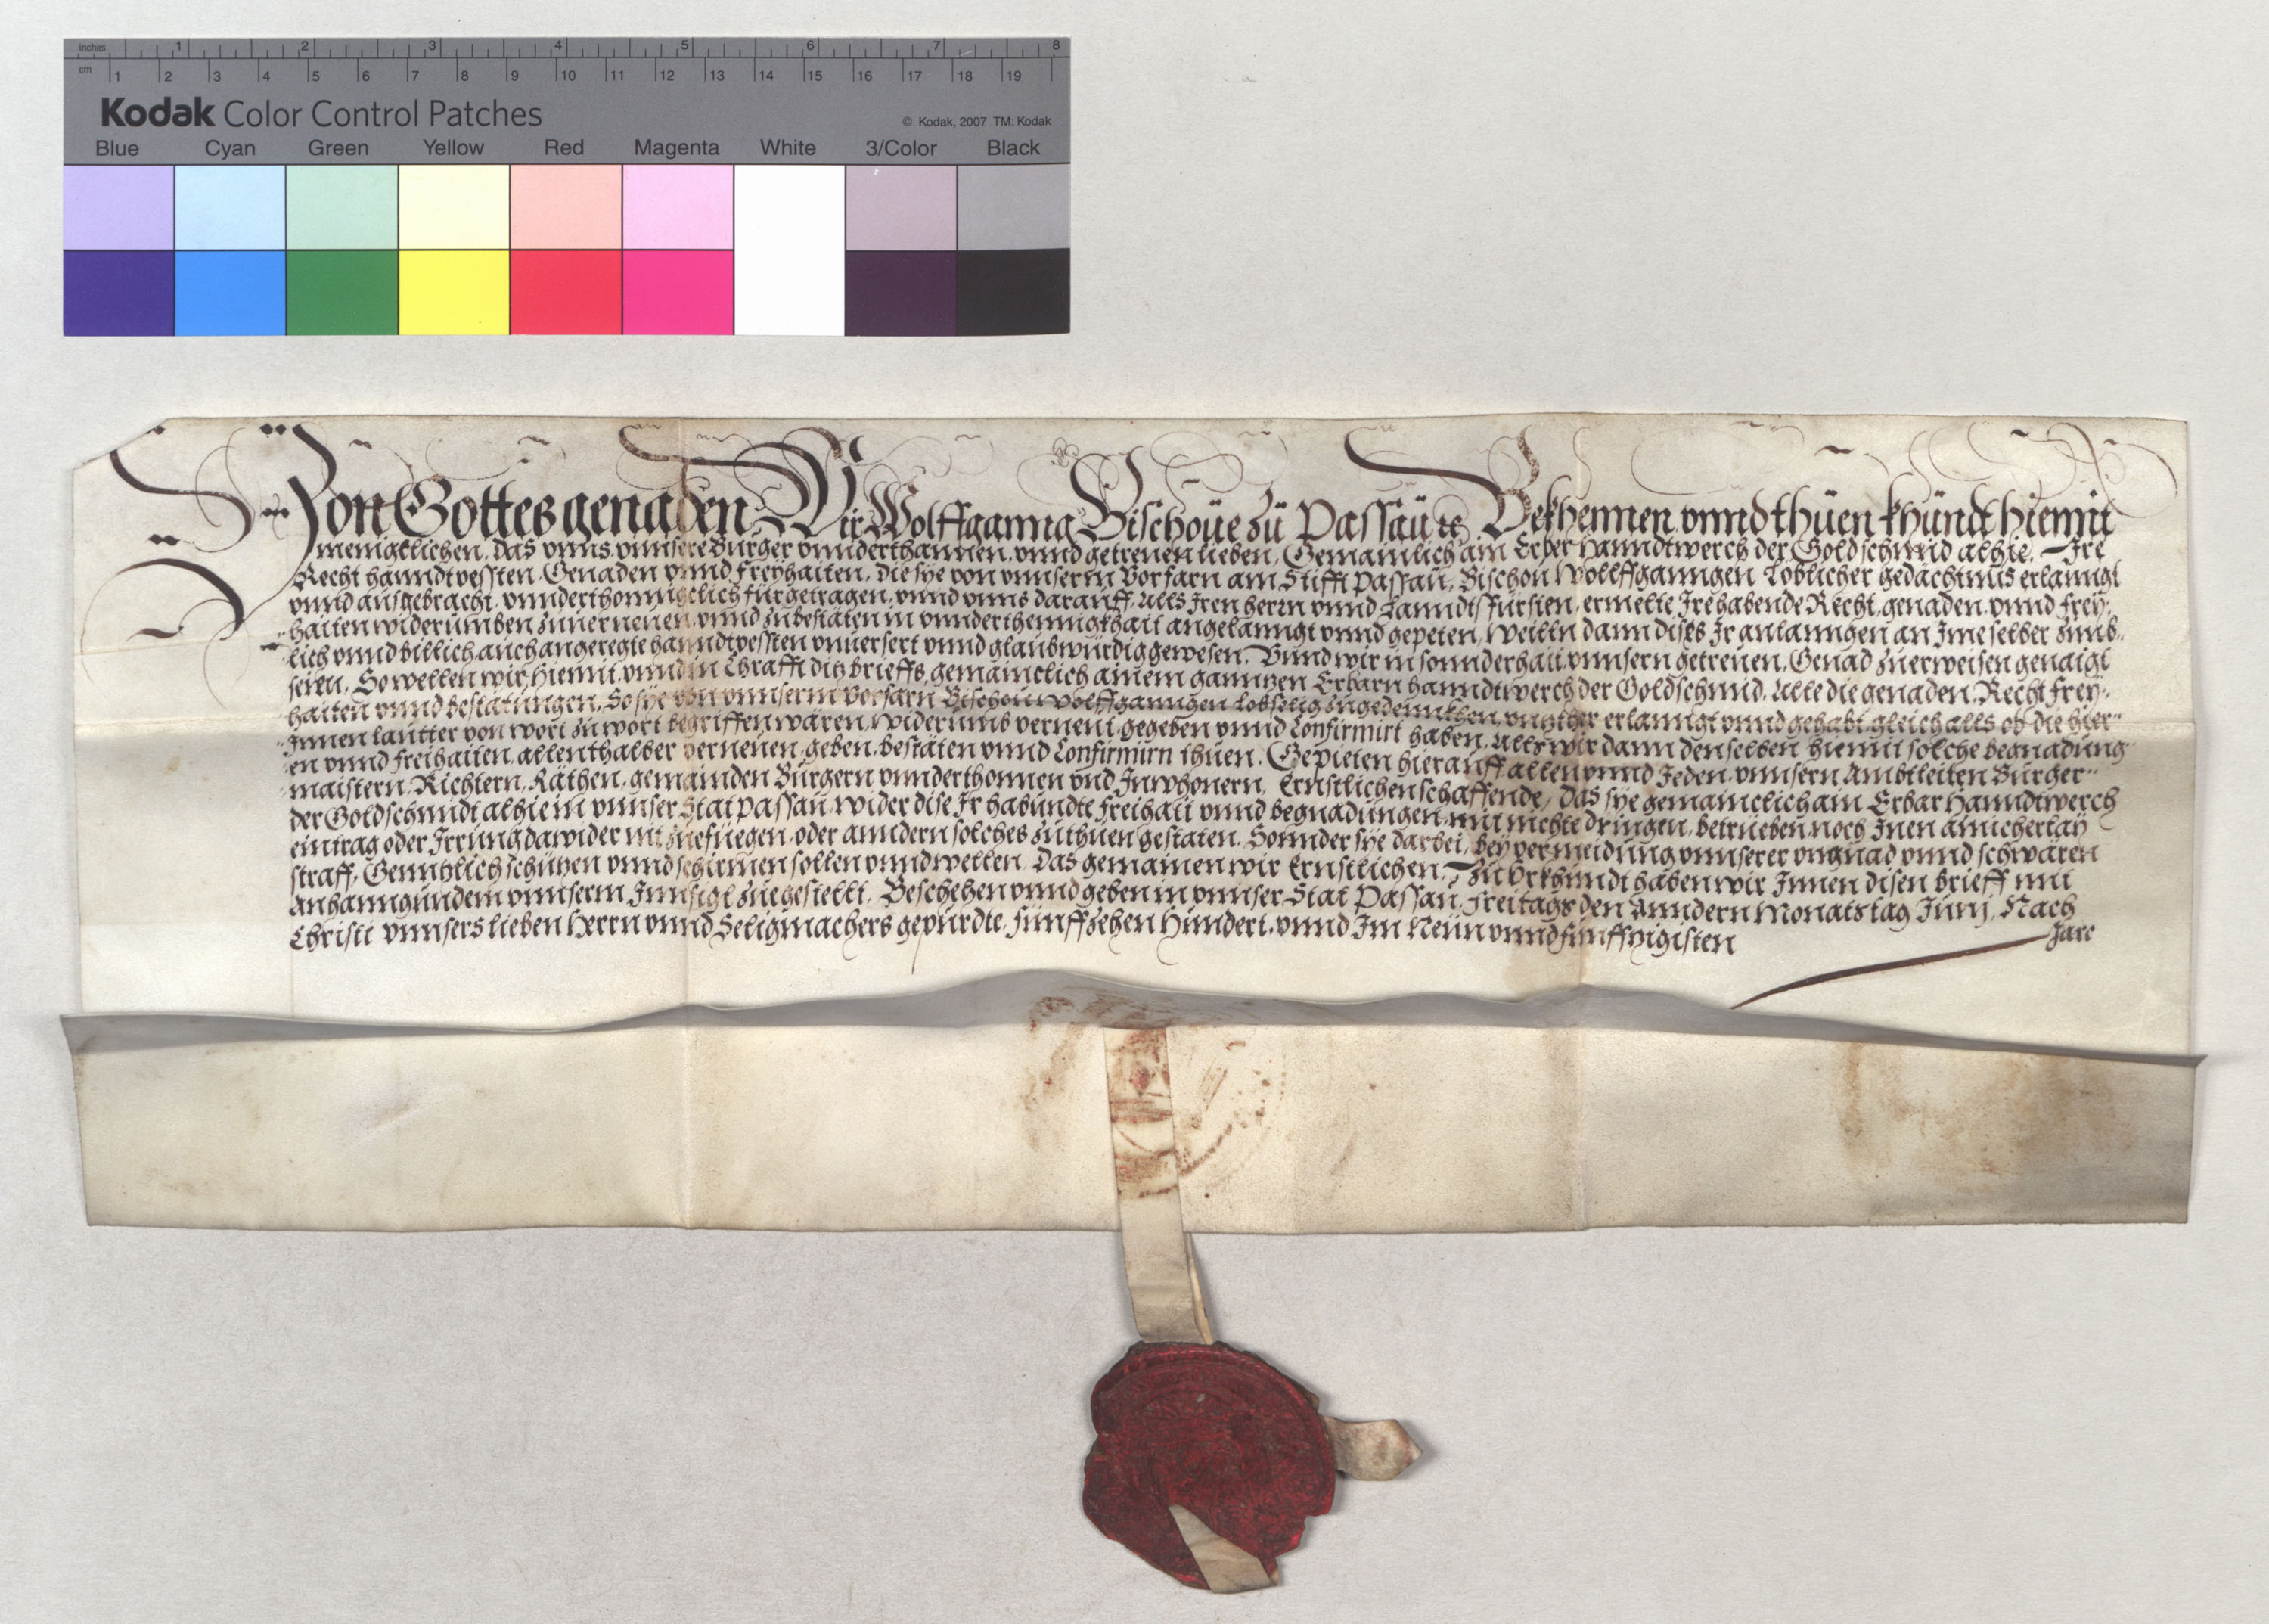 inches 1 2 3 4 5 6 7 8
cm 1 2 3 4 5 6 7 8 9 10 11 12 13 14 15 16 17 18 19
Kodak Color Control Patches © Kodak, 2007 TM: Kodak
Blue Cyan Green Yellow Red Magenta White 3/Color Black
Von Gottes genaden Wir Wolffganng Bischoue zů Passaů ꝛc Bekhennen vnnd thůen khůndt hiemit
menigklichen, das vnns vnnsere Bůrger vnnderthannen, vnnd getreuen lieben, Gemainlich ain Erber Hanndtwerch der Goldschmid alhie, Ire
Recht hanndtvessten, Genaden vnnd freyhaiten, die sye von vnnserm Vorfarn am Stifft Passaů, Bischou Wolffganngen Loblicher gedächtnus erlanngt
vnnd ausgebracht, vnnderthonnigclich fürgetragen, vnnd vnns darauff, alls Iren herrn vnnd Lanndtsfürsten, ermelte Ire habende Recht, genaden, vnnd frey-
haiten widerumben zuuerneuen, vnnd zubestäten in vnnderthennigkhait angelanngt vnnd gepeten, Weilln dann diss Ir anlanngen an Ime selber zimb-
lich vnnd billich auch angeregte hanndtvessten vnuersert vnnd glaubwürdig gewesen. Vnnd wir in sonnderhait vnnsern getreuen, Genad zuerweisen genaigt
seien, So wellen wir, hiemit vnnd in Chrafft ditz brieffs, gemainclich ainem ganntzen Erbarn hanndtwerch der Goldschmid, Alle die genaden, Recht frey-
haiten vnnd bestätungen, So sye von vnnserm Vorfarn Bischou Wolffganngen lobselig zugedennkhen, vnntzher erlanngt vnnd gehabt, gleich alls ob die hier-
Innen lautter von wort zu wort begriffen wären, widerumb verneut, gegeben vnnd Confirmirt haben, Alls wir dann denselben hiemit solche begnadung
en vnnd freihaiten, allenthalber verneuen, geben, bestäten vnnd Confirmirn thuen. Gepieten hierauff allen vnnd Jeden, vnnsern Ambtleiten Bürger-
maistern, Richtern, Räthen, gemainden Bürgern vnnderthonnen vnd Inwhonern, Ernstlichen schaffende, das sye gemainclich ain Erbar Hanndtwerch
der Goldschmidt alhie in vnnser Stat Passau, wider dise Ir habundte freihait vnnd begnadungen, mit nichte dringen, betrueben, noch Inen ainicherlay
eintrag oder Irrung dawider nit zuefuegen, oder anndern solches zuthuen gestaten. Sonnder sye darbei, bey vermeidung vnnserer vngnad vnnd schwären
straff, Genntzlich schutzen vnnd schirmen sollen vnnd wellen. Das gemainen wir Ernstlichen. Zu Vrkhundt haben wir Innen disen brieff mit
Anhanngundem vnnserm Innsigl zuegestellt. Beschehen vnnd geben in vnnser Stat Passau, Freitags den Anndern Monatstag Junj, Nach
Christi vnnsers lieben Herrn vnnd Seligmachers gepurdte, funffzehen Hundert, vnnd Im Neun vnnd funfftzigisten Jare